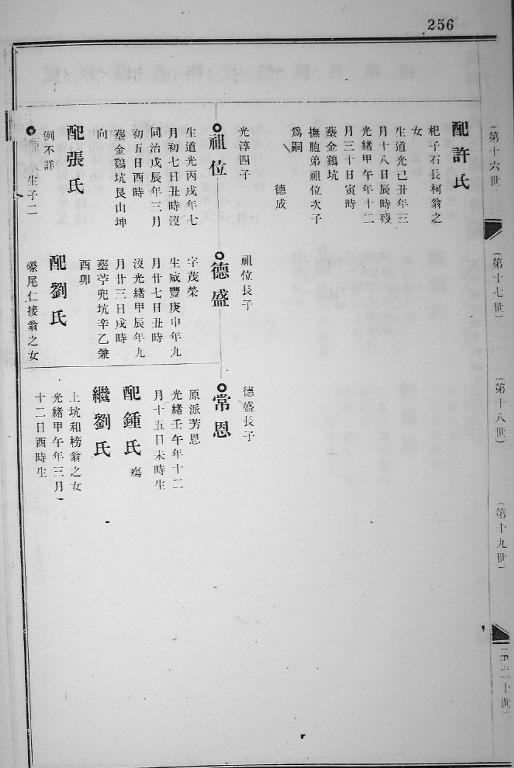 256
(第十六世)
(第十七世)
(第十八世)
(第十九世)
(第二十世)
配許氏
杞子石長柯翁之
女
生道光己丑年三
月十八日辰時歿
光緒甲午年十二
月三十日寅時
葬金鷄坑
撫胞弟祖位次子
爲嗣
德成
光淳四子
祖位
生道光丙戌年七
月初七日丑時沒
同治戊辰年三月
初五日酉時
葬金鷄坑艮山坤
向
配張氏
例不詳
生子二
祖位長子
德盛
字茂榮
生咸豐庚申年九
月廿七日丑時
沒光緒甲辰年九
月廿三日戌時
葬苧兜坑辛乙兼
酉卯
配劉氏
尾仁接翁之女
德盛長子
常恩
原派芳恩
光緒壬午年十二
月十五日未時生
配鍾氏 殤
繼劉氏
上坑和榜翁之女
光緒甲午年三月
十二日酉時生